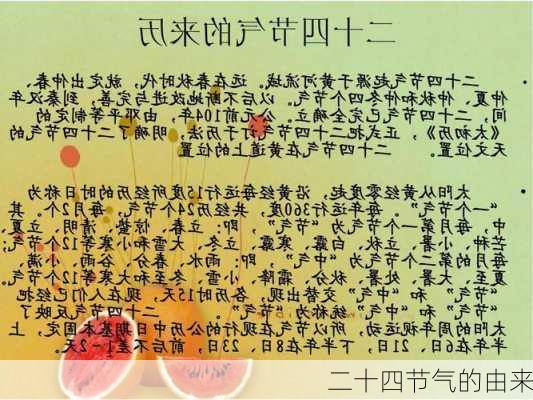 二十四节气的来历
二十四节气起源于黄河流域。远在春秋时代，就定出仲春、
仲夏、仲秋和仲冬四个节气。以后不断地改进与完善，到秦汉年
间，二十四节气已完全确立。公元前104年，由邓平等制定的
《太初历》，正式把二十四节气订于历法，明确了二十四节气的
天文位置。 二十四节气在黄道上的位置
太阳从黄经零度起，沿黄经每运行15度所经历的时日称为
“一个节气”。每年运行360度，共经历24个节气，每月2个。其
中，每月第一个节气为“节气”，即：立春、惊蛰、清明、立夏、
芒种、小暑、立秋、白露、寒露、立冬、大雪和小寒等12个节气；
每月的第二个节气为“中气”，即：雨水、春分、谷雨、小满、
夏至、大暑、处暑、秋分、霜降、小雪、冬至和大寒等12个节气。
“节气” 和 “中气” 交替出现，各历时15天，现在人们已经把
“节气” 和 “中气” 统称为 “节气”。 二十四节气反映了
太阳的周年视运动，所以节气在现行的公历中日期基本固定，上
半年在6日、21日，下半年在8日、23日，前后不差1-2天。
二十四节气的由来